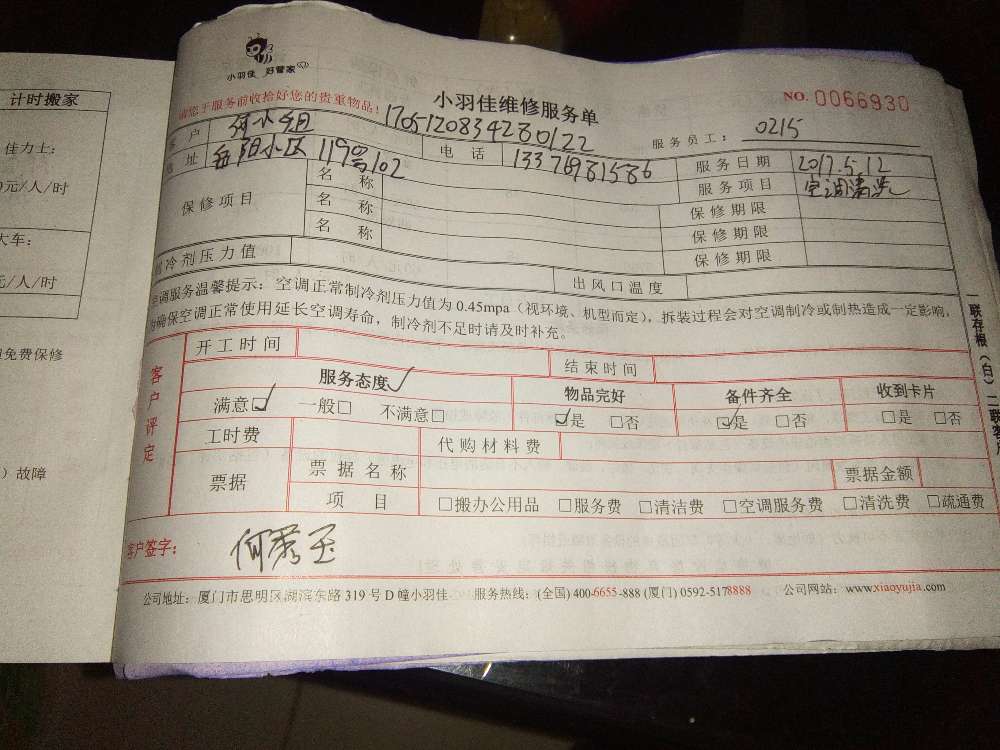 计时搬家
佳力士：
元/人/时
大车：
元/人/时
免费保修
）故障
小羽佳 好管家
请您于服务前收拾好您的贵重物品！
小羽佳维修服务单
NO. 0066930
1705120834280122
服务员工： 0215
客 户 何小姐
电 话 13376981586
服务日期 2017.5.12
地 址 岳阳小区119号102
服务项目 空调清洗
保修项目
名 称
保修期限
名 称
保修期限
名 称
保修期限
制冷剂压力值
出风口温度
空调服务温馨提示：空调正常制冷剂压力值为 0.45mpa（视环境、机型而定），拆装过程会对空调制冷或制热造成一定影响，
为确保空调正常使用延长空调寿命，制冷剂不足时请及时补充。
客户评定
开工时间
结束时间
服务态度✓
物品完好
备件齐全
收到卡片
满意☑ 一般□ 不满意□
☑是 □否
☑是 □否
□是 □否
工时费
代购材料费
票据
票据名称
票据金额
项 目
□搬办公用品 □服务费 □清洁费 □空调服务费 □清洗费 □疏通费
客户签字：
公司地址：厦门市思明区湖滨东路 319 号 D 幢小羽佳
服务热线：(全国) 400-6655-888 (厦门) 0592-5178888
公司网站：www.xiaoyujia.com
一联存根（白）二联客户